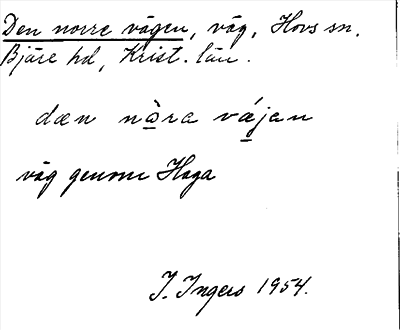 Den norre vägen, väg, Hovs sn,
Bjäre hd, Krist. län.
dæn nò̱ra vá̱jan
väg genom Haga
I. Ingers 1954.